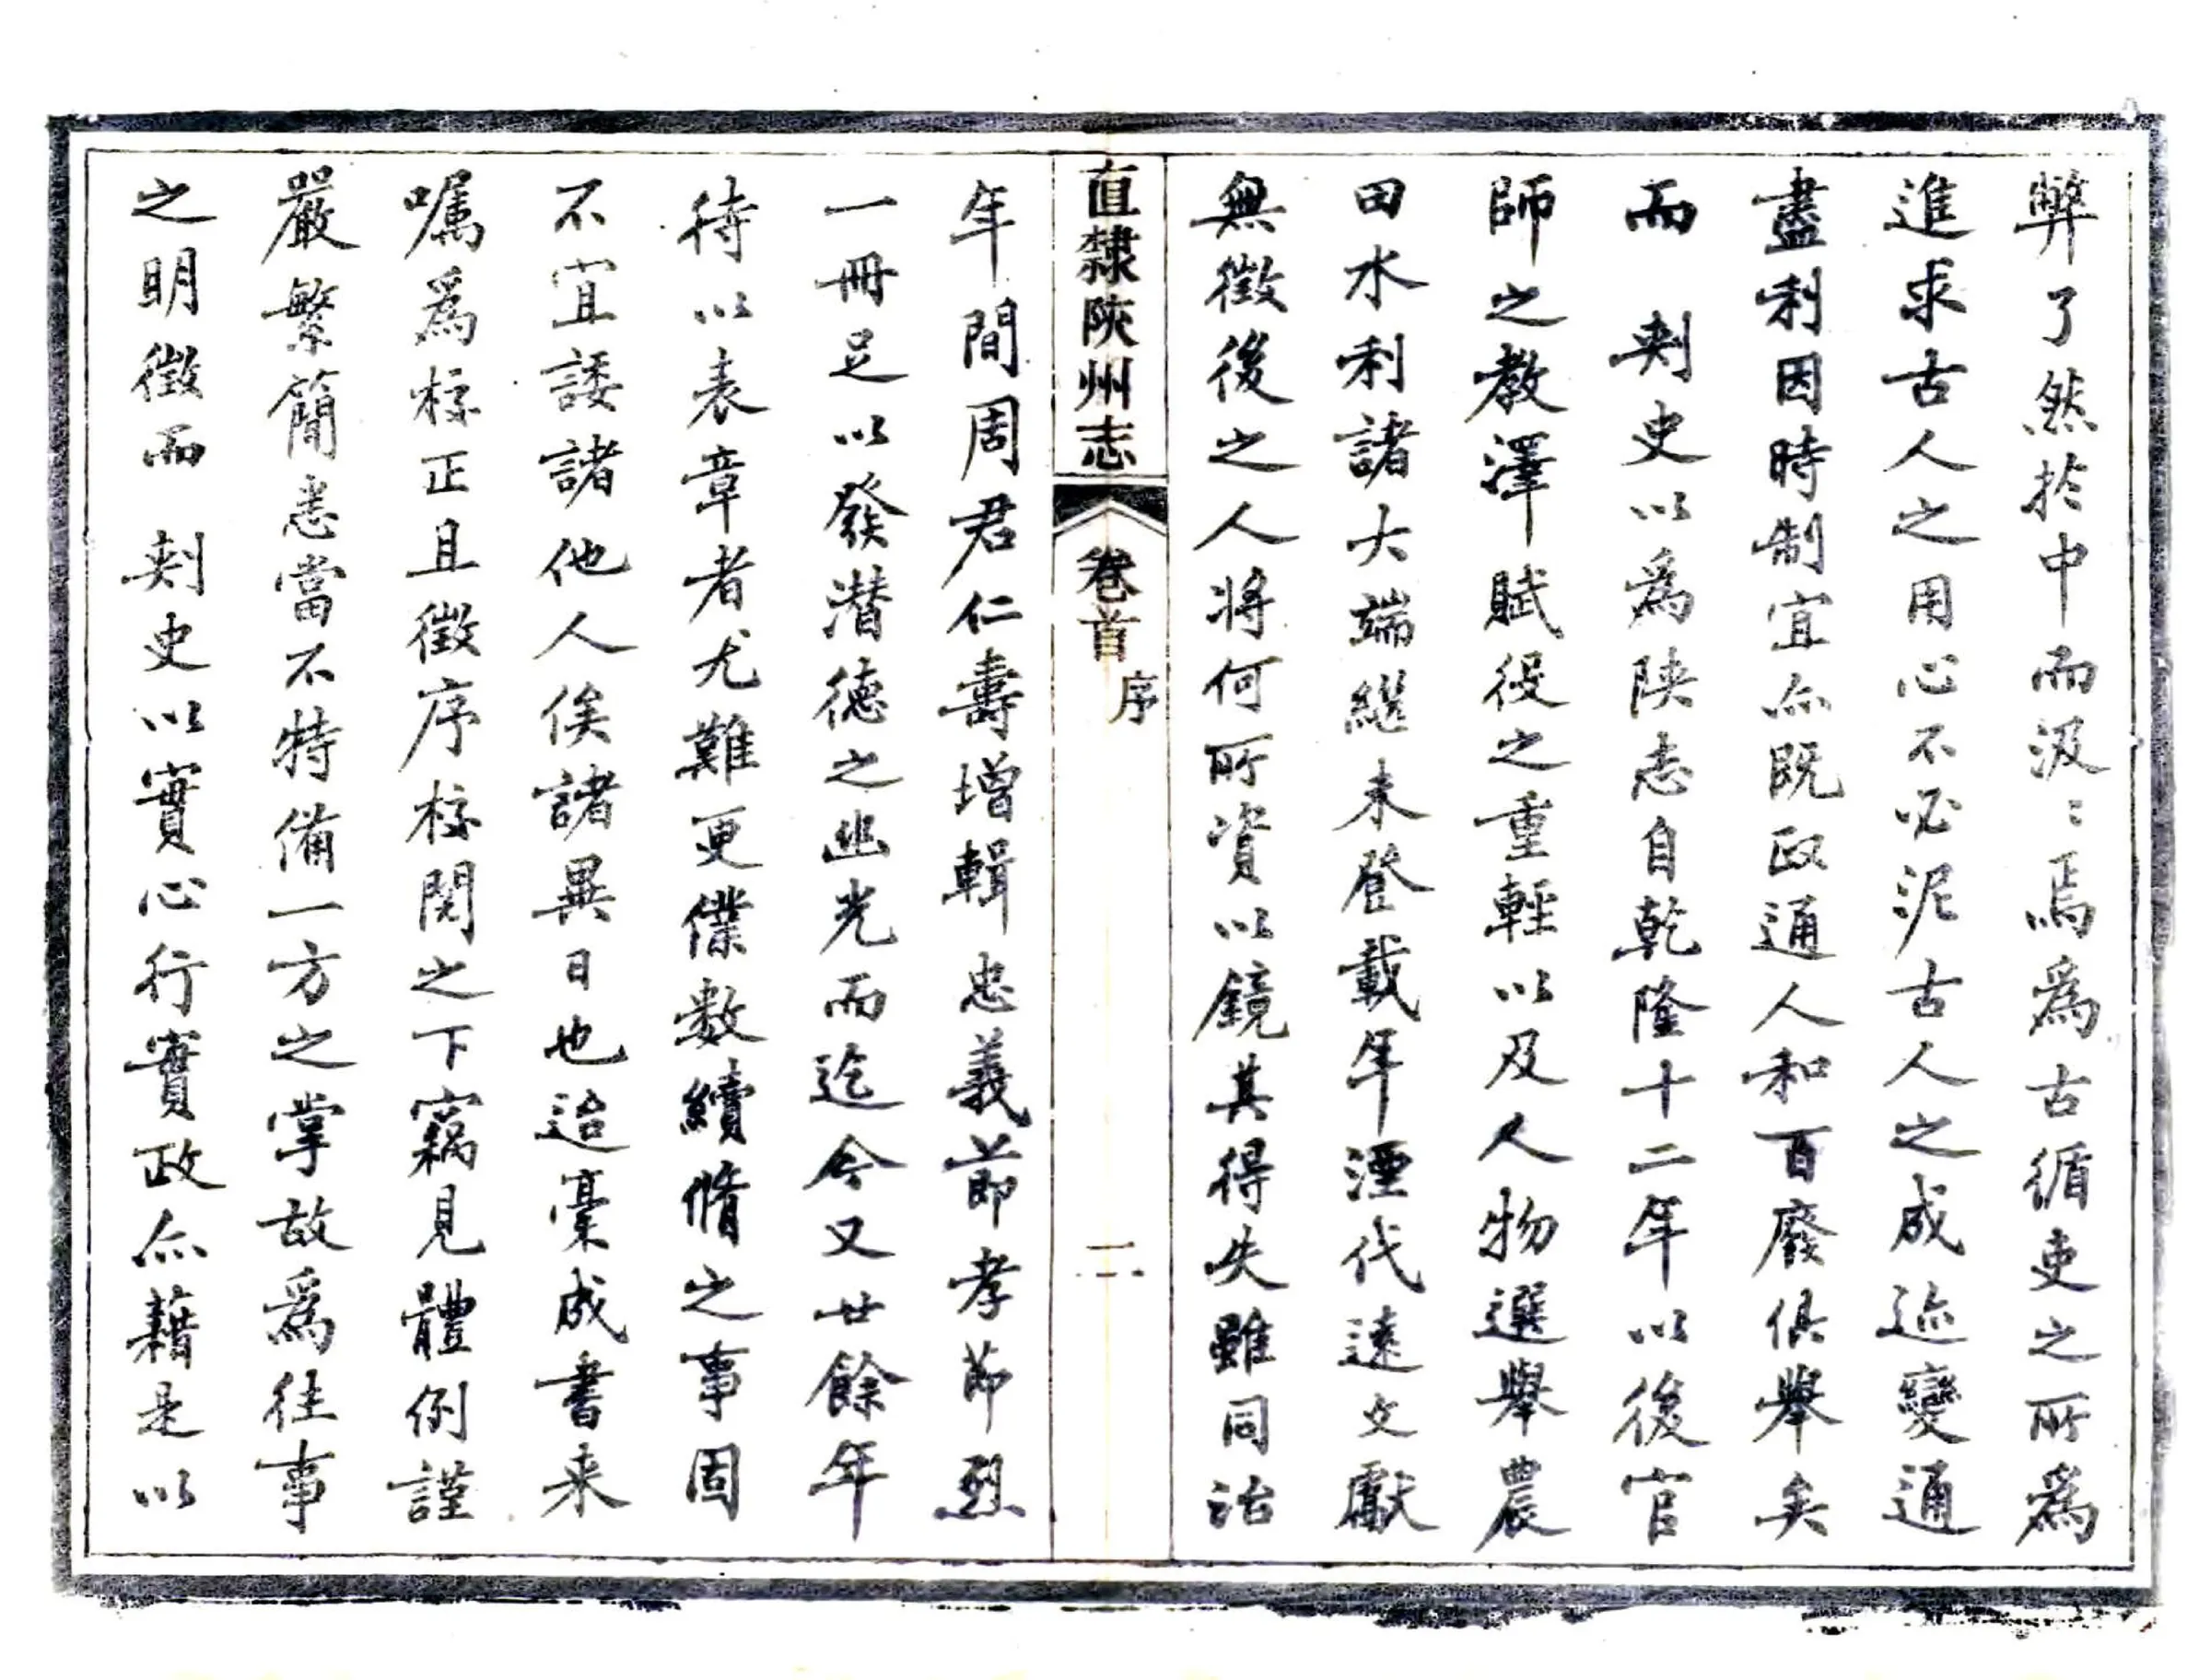 弊了然於中而汲〻焉為古循吏之所為
進求古人之用心不必泥古人之成迹變通
盡利因時制宜亦既政通人和百廢俱舉矣
而 刺史以為陝志自乾隆十二年以後官
師之教澤賦役之重輕以及人物選舉農
田水利諸大端繼未登載年湮代遠文獻
無徵後之人將何所資以鏡其得失雖同治
直隸陝州志 卷首 序 二
年間周君仁壽增輯忠義節孝節烈
一冊足以發潛德之幽光而迄今又廿餘年
待以表章者尤難更僕數續脩之事固
不宜諉諸他人俟諸異日也迨稾成書来
囑為校正且徵序校閱之下竊見體例謹
嚴繁簡悉當不特備一方之掌故為往事
之明徵而 刺史以實心行實政亦藉是以